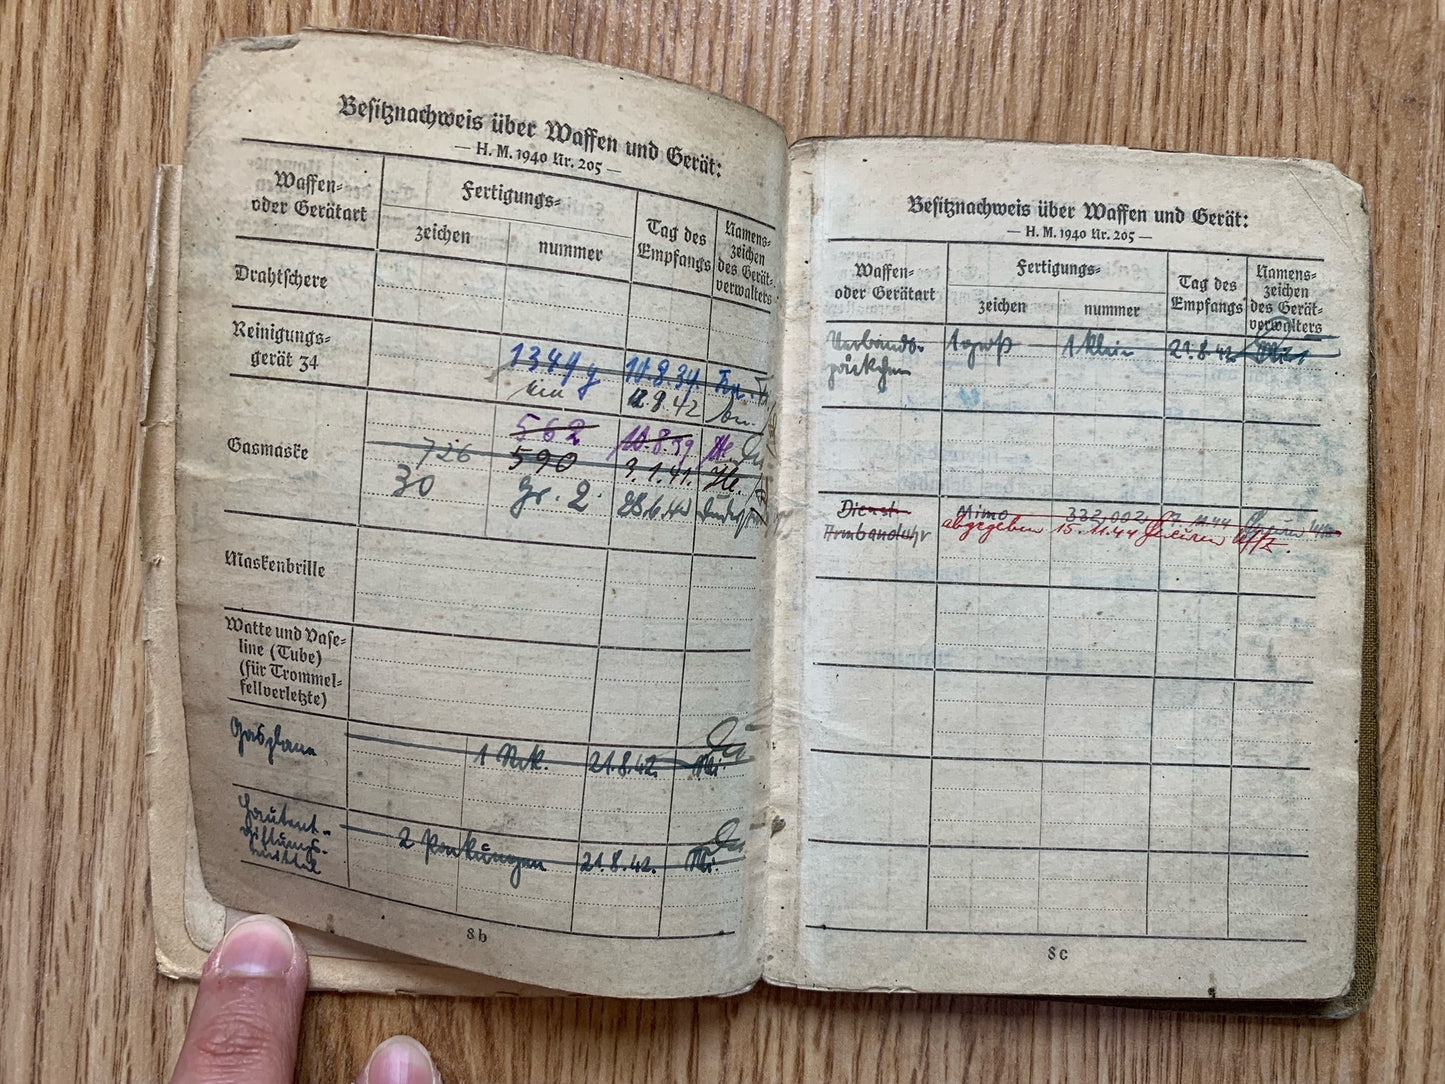 Besitznachweis über Waffen und Gerät:
— H. M. 1940 Nr. 205 —
Waffen-
oder Gerätart
Fertigungs-
zeichen
nummer
Tag des
Empfangs
Namens-
zeichen
des Gerät-
verwalters
Drahtschere
Reinigungs-
gerät 34
1349 g 10.8.39.
ein 12.9.42
Gasmaske
562 10.8.39
726 590 9.1.41.
30 Gr. 2. 28.6.42
Maskenbrille
Watte und Vase-
line (Tube)
(für Trommel-
fellverletzte)
Gasplane
1 Stck. 21.8.42.
Hautent-
giftungs-
mittel
2 Packungen 21.8.42.
8b
Besitznachweis über Waffen und Gerät:
— H. M. 1940 Nr. 205 —
Waffen-
oder Gerätart
Fertigungs-
zeichen
nummer
Tag des
Empfangs
Namens-
zeichen
des Gerät-
verwalters
Verbands-
päckchen
1 groß 1 klein 21.8.42
Dienst-
Armbanduhr
Mimo 332.002
abgegeben 15.11.44 Uffz.
8c